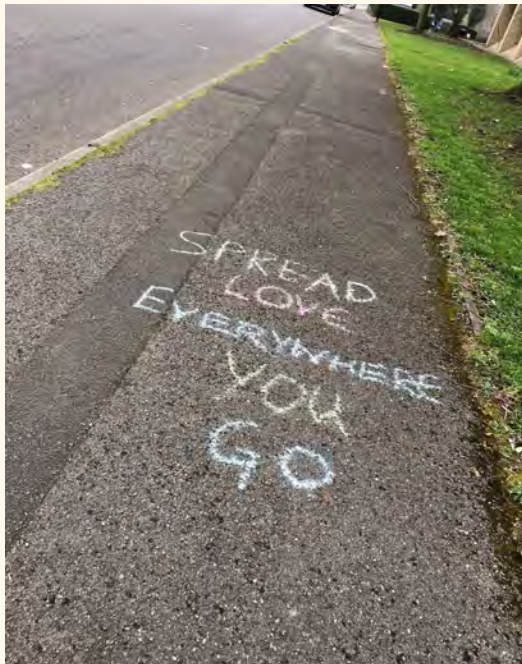 SPREAD
LOVE
EVERYWHERE
YOU
GO